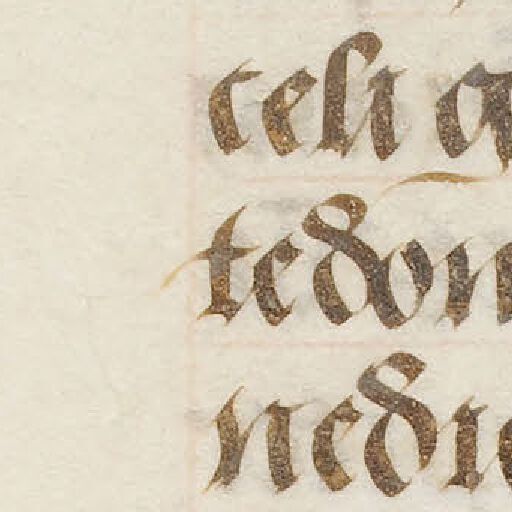 celi q
tedon
nedic